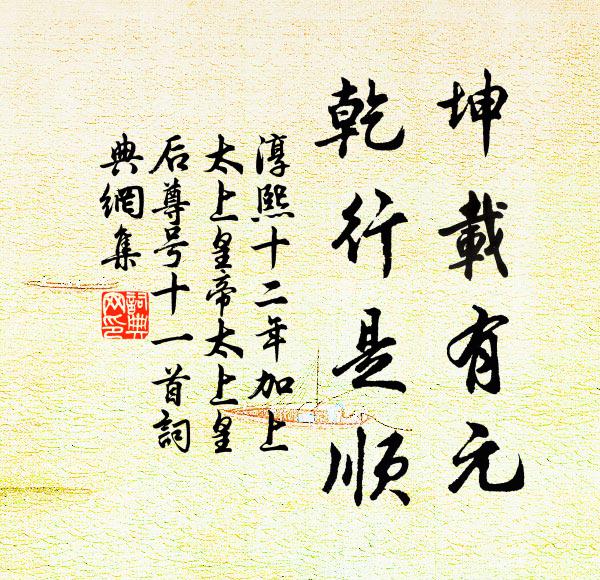 坤載有元
乾行是順
淳熙十二年加上
太上皇帝太上皇
后尊号十一首詞
典網集
詞典
网印